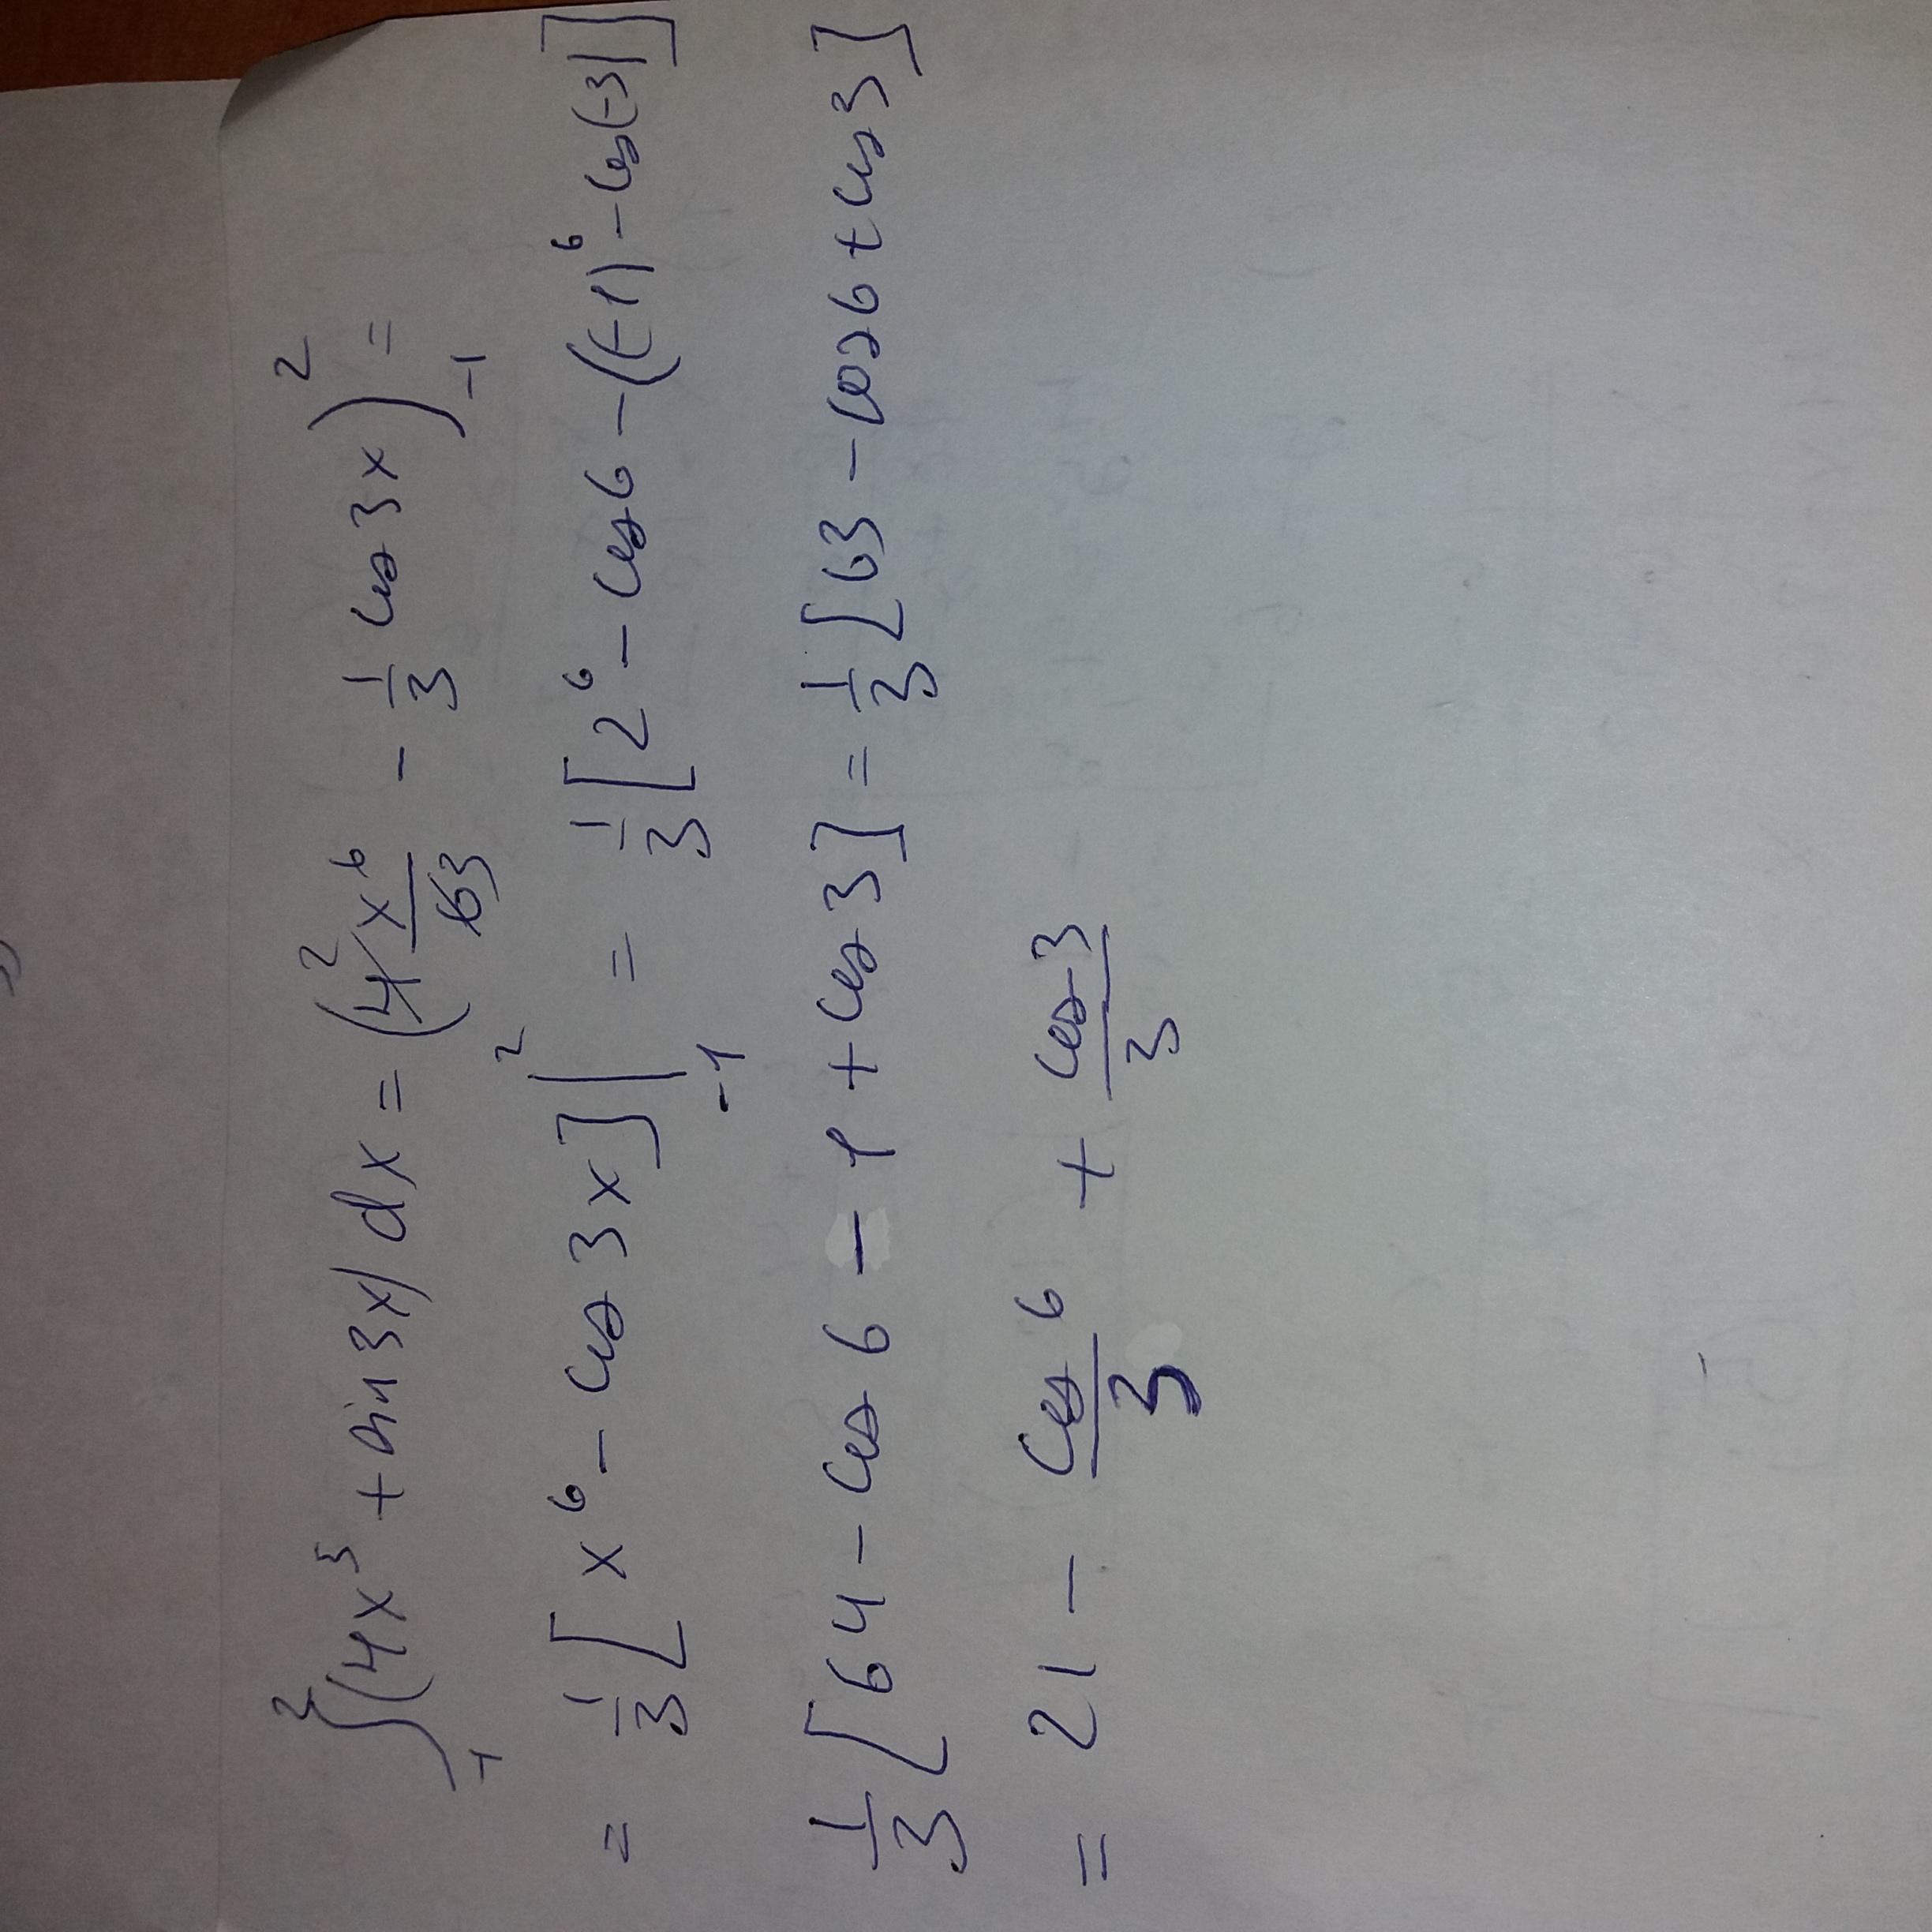 ∫₋₁² (4x⁵ + sin3x) dx = (4̸² x⁶/6̸3 − 1/3 cos3x)₋₁² =
= 1/3 [x⁶ − cos 3x] |₋₁² = 1/3 [2⁶ − cos6 − ((−1)⁶ − cos(−3)]
1/3 [64 − cos 6 − 1 + cos 3] = 1/3 [63 − cos6 + cos3]
= 21 − cos6/3 + cos3/3